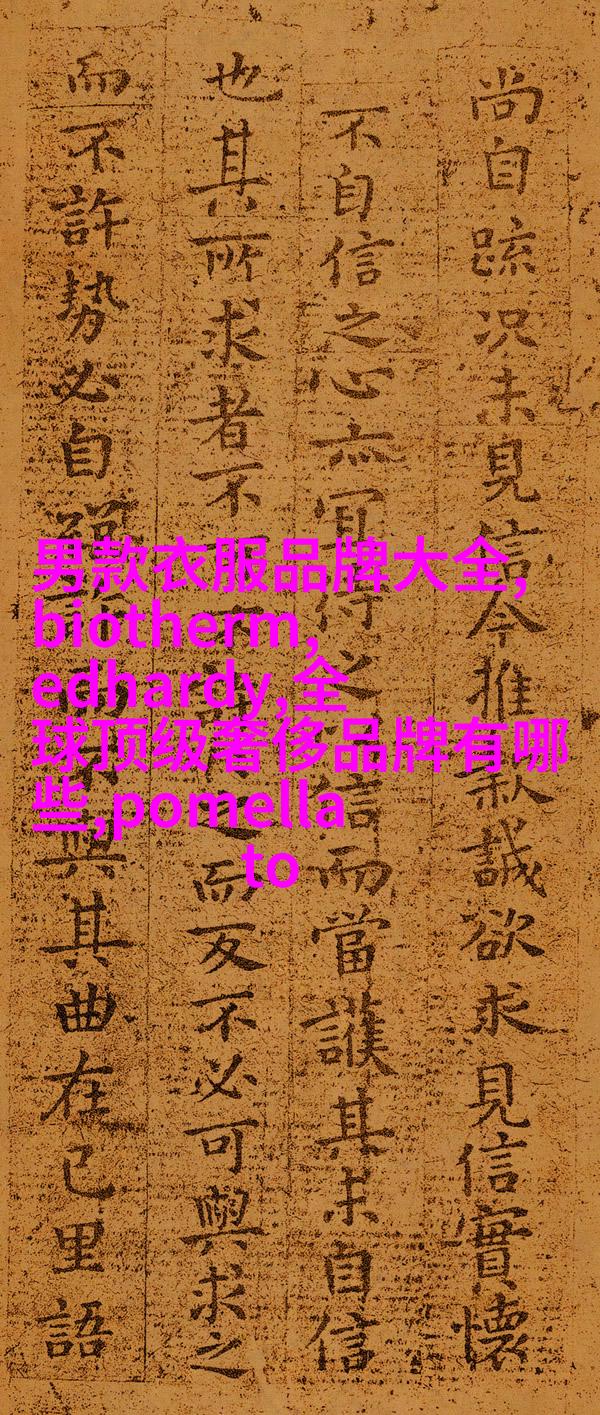 尚自疏况未見信今推款誠欲求見信實懷
不自信之心亦冝得之信而當護其未自信
也其所求者不許之而反不必可與求之
而不許勢必自與其曲在己里語
男款衣服品牌大全,
biotherm,
edhardy,全
球顶级奢侈品牌有哪
些,pomella
to